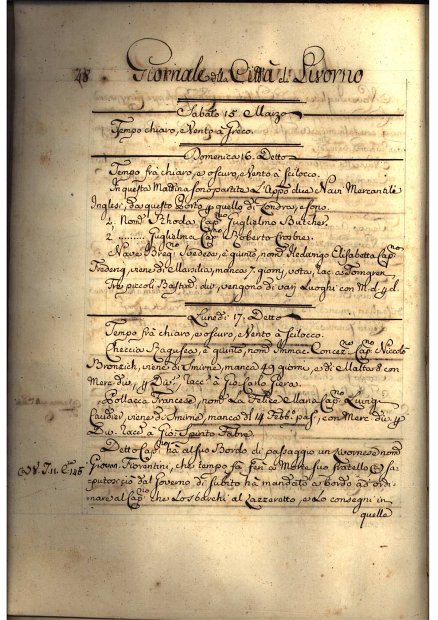 48 Giornale della Città di Livorno
Sabato 15. Marzo
Tempo chiaro, e Vento à Greco.
Domenica 16. Detto
Tempo frà chiaro, e oscuro, e Vento à Scilocco.
In questa Mattina sono partite l'Appo due Navi Mercantile
Inglesi da questo Porto p quello di Londra, e sono.
2. Nom.ª Rhoda Cap.no Guglielmo Butcher.
2. ........ Guglielma Cap.no Roberto Crosbie.
Nave Svedese, è giunto, nom. Hedwinge Elisabetta Cap.no
viene di Marsilia, manca 7. giorni, vota, rac. a
Tre piccoli Bastim. div. vengono di varj Luoghi con M. d. y d.
Lunedì 17. Detto
Tempo frà chiaro, e oscuro, e Vento à Scilocco.
Checcia Ragusea, è giunto, nom. Immac. Concez.ne Cap.no Niccolò
viene di Smirne, manca 49 giorno, e di Malta 8 con
Merc. div. Racc. à Gio. Carlo
Pollacca Francese, nom. La Felice Cap.no Luigi
viene di Smirne, manca dì 14 Febb. pas., con Merc. div. y
Racc. à Gio: Spirito Fabre
Detto Cap.no hà al suo Bordo di passaggio un Livornese nom.
Giovan. Fiorentini, che tempo fà ferì a Morte suo fratello e sa-
putosi ciò dal Governo di subito hà mandato a bordo ad ordi-
nare al Cap.no che lo sbarchi al Lazzeretto, e lo consegni in
quelle